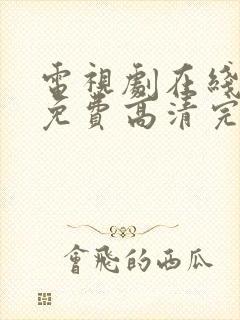 電視劇在綫
免費高清完
會飛的西瓜